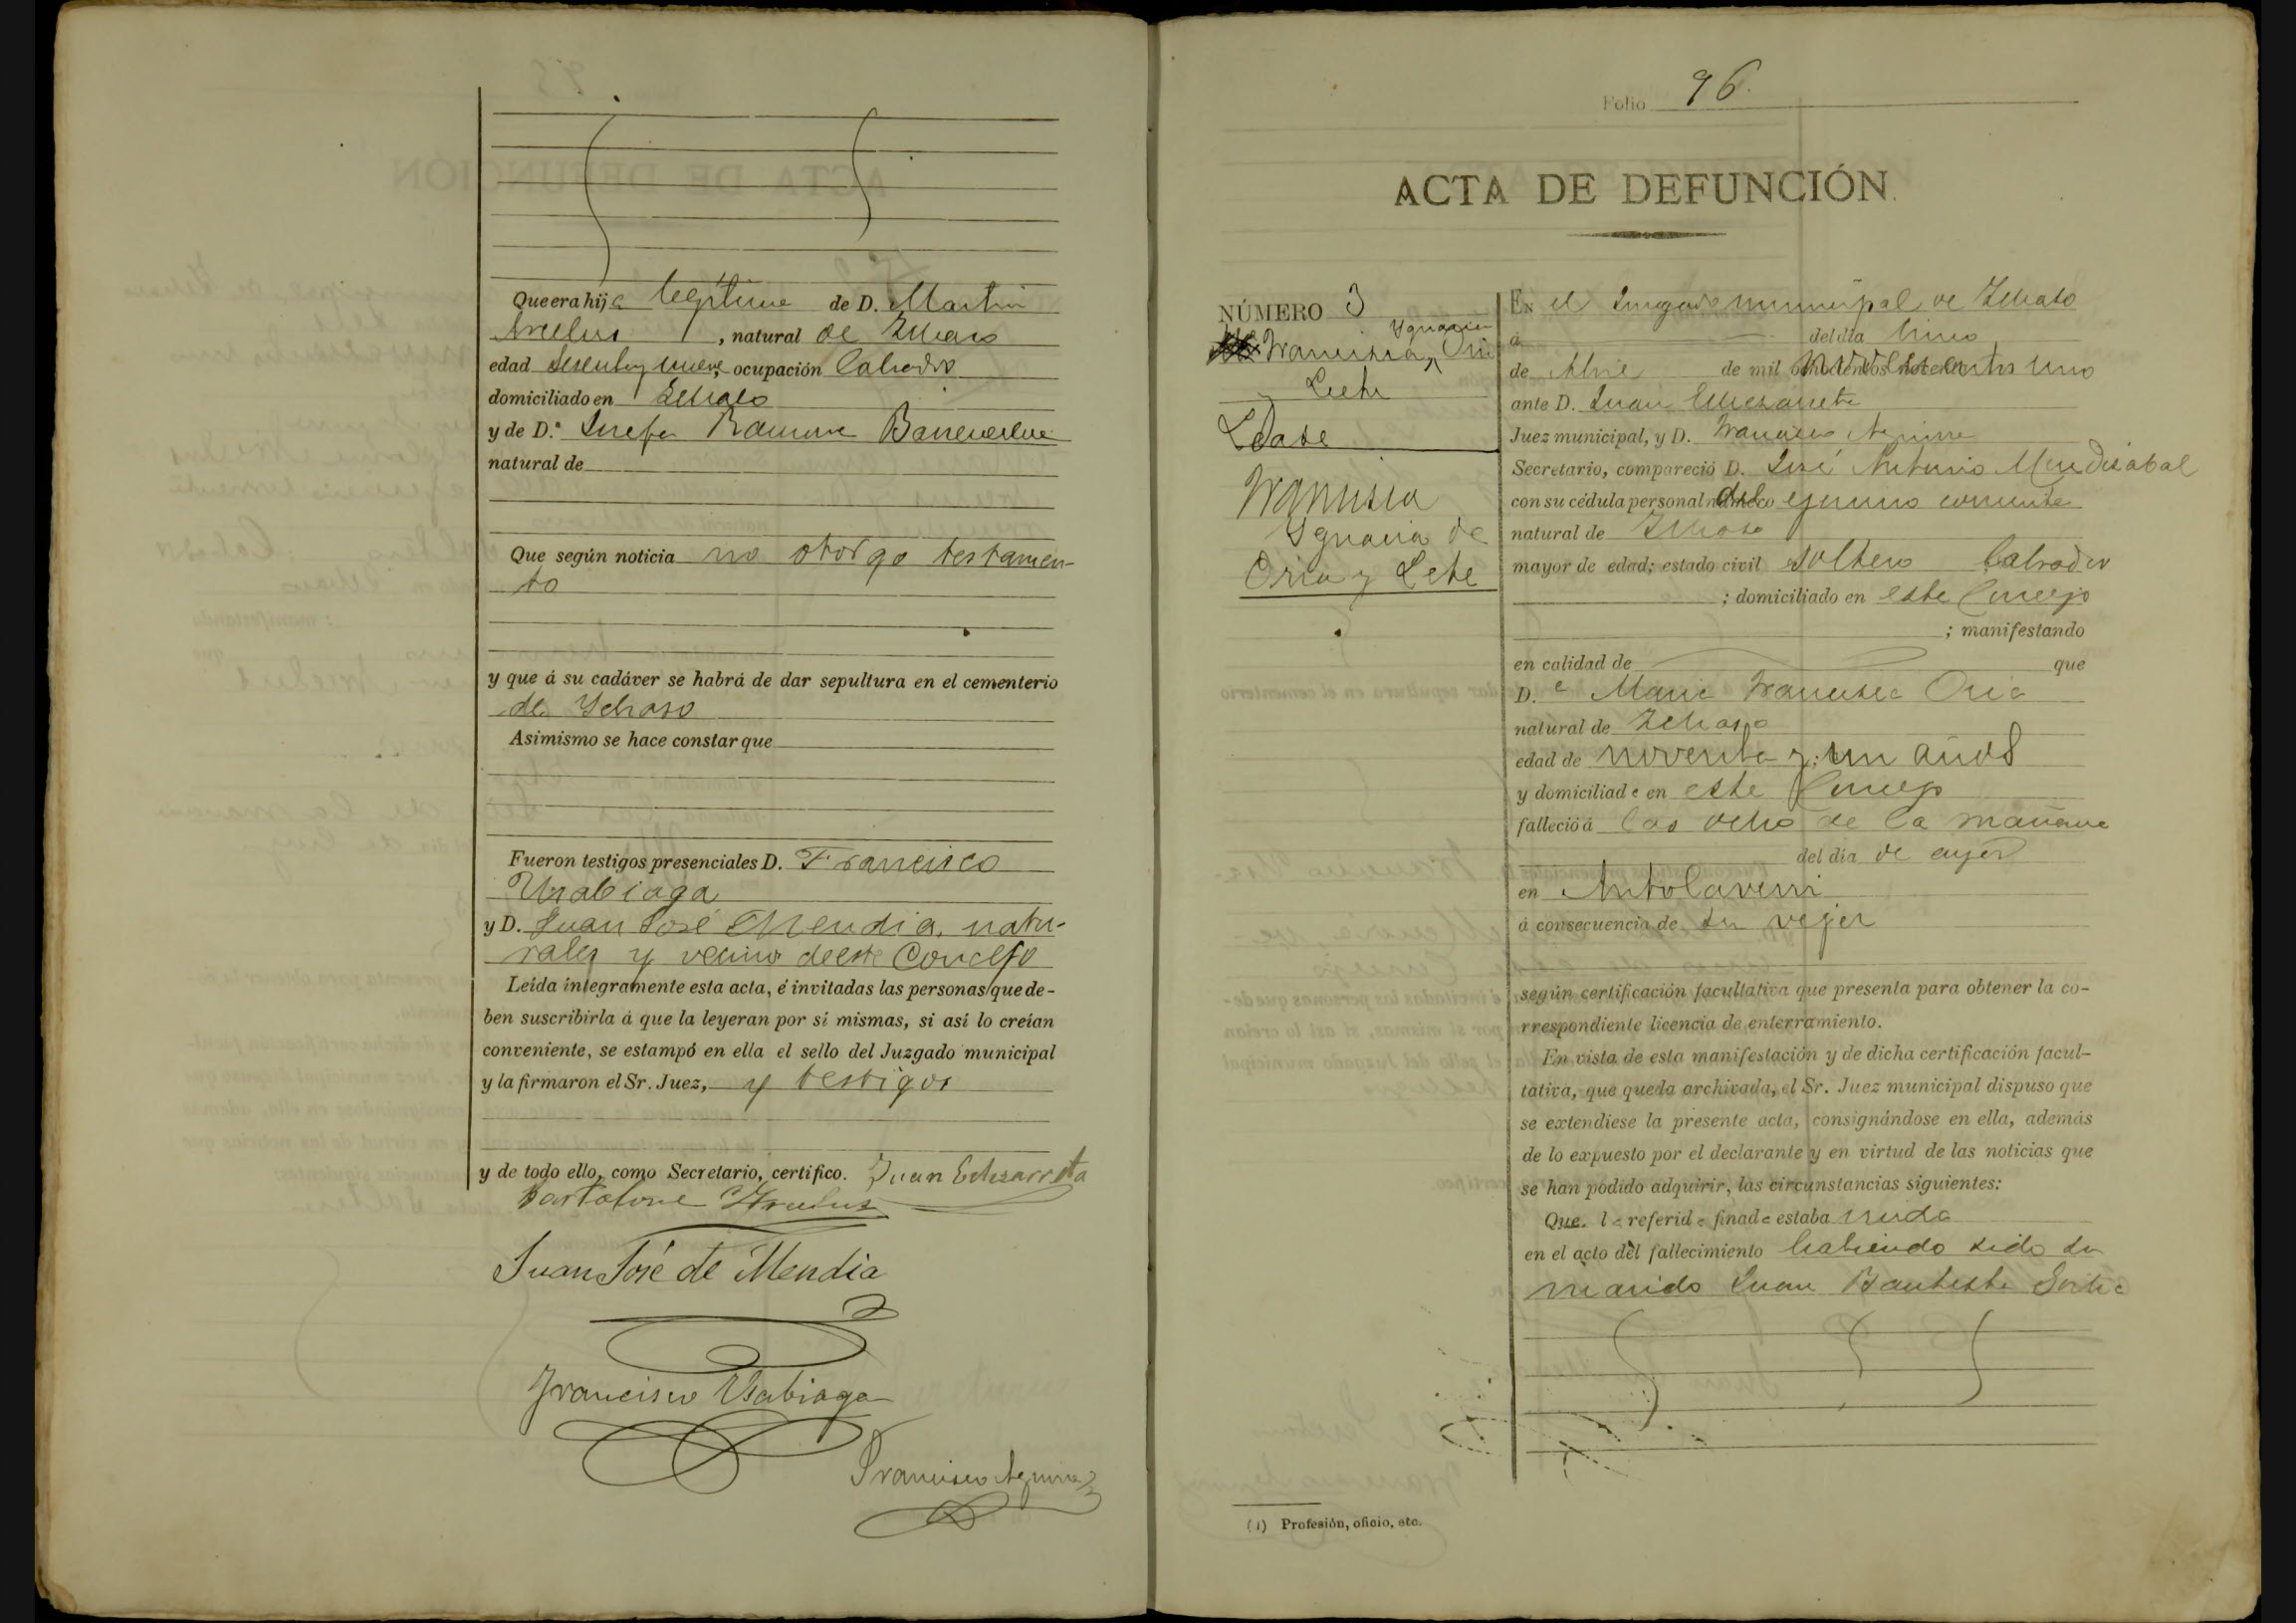 Que era hija legitima de D. Martin
Arcelus, natural de Ichaso
edad sesenta y nueve, ocupación Labrador
domiciliado en Ichaso
y de D.ª Josefa Ramona
natural de
Que según noticia no otorgo testamen-
to
y que á su cadáver se habrá de dar sepultura en el cementerio
de Ychaso
Asimismo se hace constar que
Fueron testigos presenciales D. Francisco
Usabiaga
y D. Juan José Mendia, natu-
rales y vecinos de este Concejo
Leída íntegramente esta acta, é invitadas las personas que de-
ben suscribirla á que la leyeran por sí mismas, si así lo creían
conveniente, se estampó en ella el sello del Juzgado municipal
y la firmaron el Sr. Juez, y testigos
y de todo ello, como Secretario, certifico. Juan Echezarreta
Bartolome Arcelus
Juan José de Mendia
Francisco Usabiaga
Francisco Aguirre
Folio 96.
ACTA DE DEFUNCIÓN.
NÚMERO 3
Ygnacia
Francisca Oria
Lete
Lease
Francisca
Ygnacia de
Oria y Lete
EN el Juzgado municipal de Ichaso
á del día Cinco
de Abril de mil novecientos uno
ante D. Juan Echezarreta
Juez municipal, y D. Francisco Aguirre
Secretario, compareció D. José Antonio Mendizabal
con su cédula personal del corriente
natural de Ichaso
mayor de edad; estado civil soltero Labrador
; domiciliado en este Concejo
; manifestando
en calidad de que
D.ª Maria Francisca Oria
natural de Ichaso
edad de noventa y un años
y domiciliada en este Concejo
falleció á las ocho de la mañana
del día de ayer
en Antolaverri
á consecuencia de su vejez
según certificación facultativa que presenta para obtener la co-
rrespondiente licencia de enterramiento.
En vista de esta manifestación y de dicha certificación facul-
tativa, que queda archivada, el Sr. Juez municipal dispuso que
se extendiese la presente acta, consignándose en ella, además
de lo expuesto por el declarante y en virtud de las noticias que
se han podido adquirir, las circunstancias siguientes:
Que la referida finada estaba viuda
en el acto del fallecimiento habiendo sido su
marido Juan Bautista
(1) Profesión, oficio, etc.